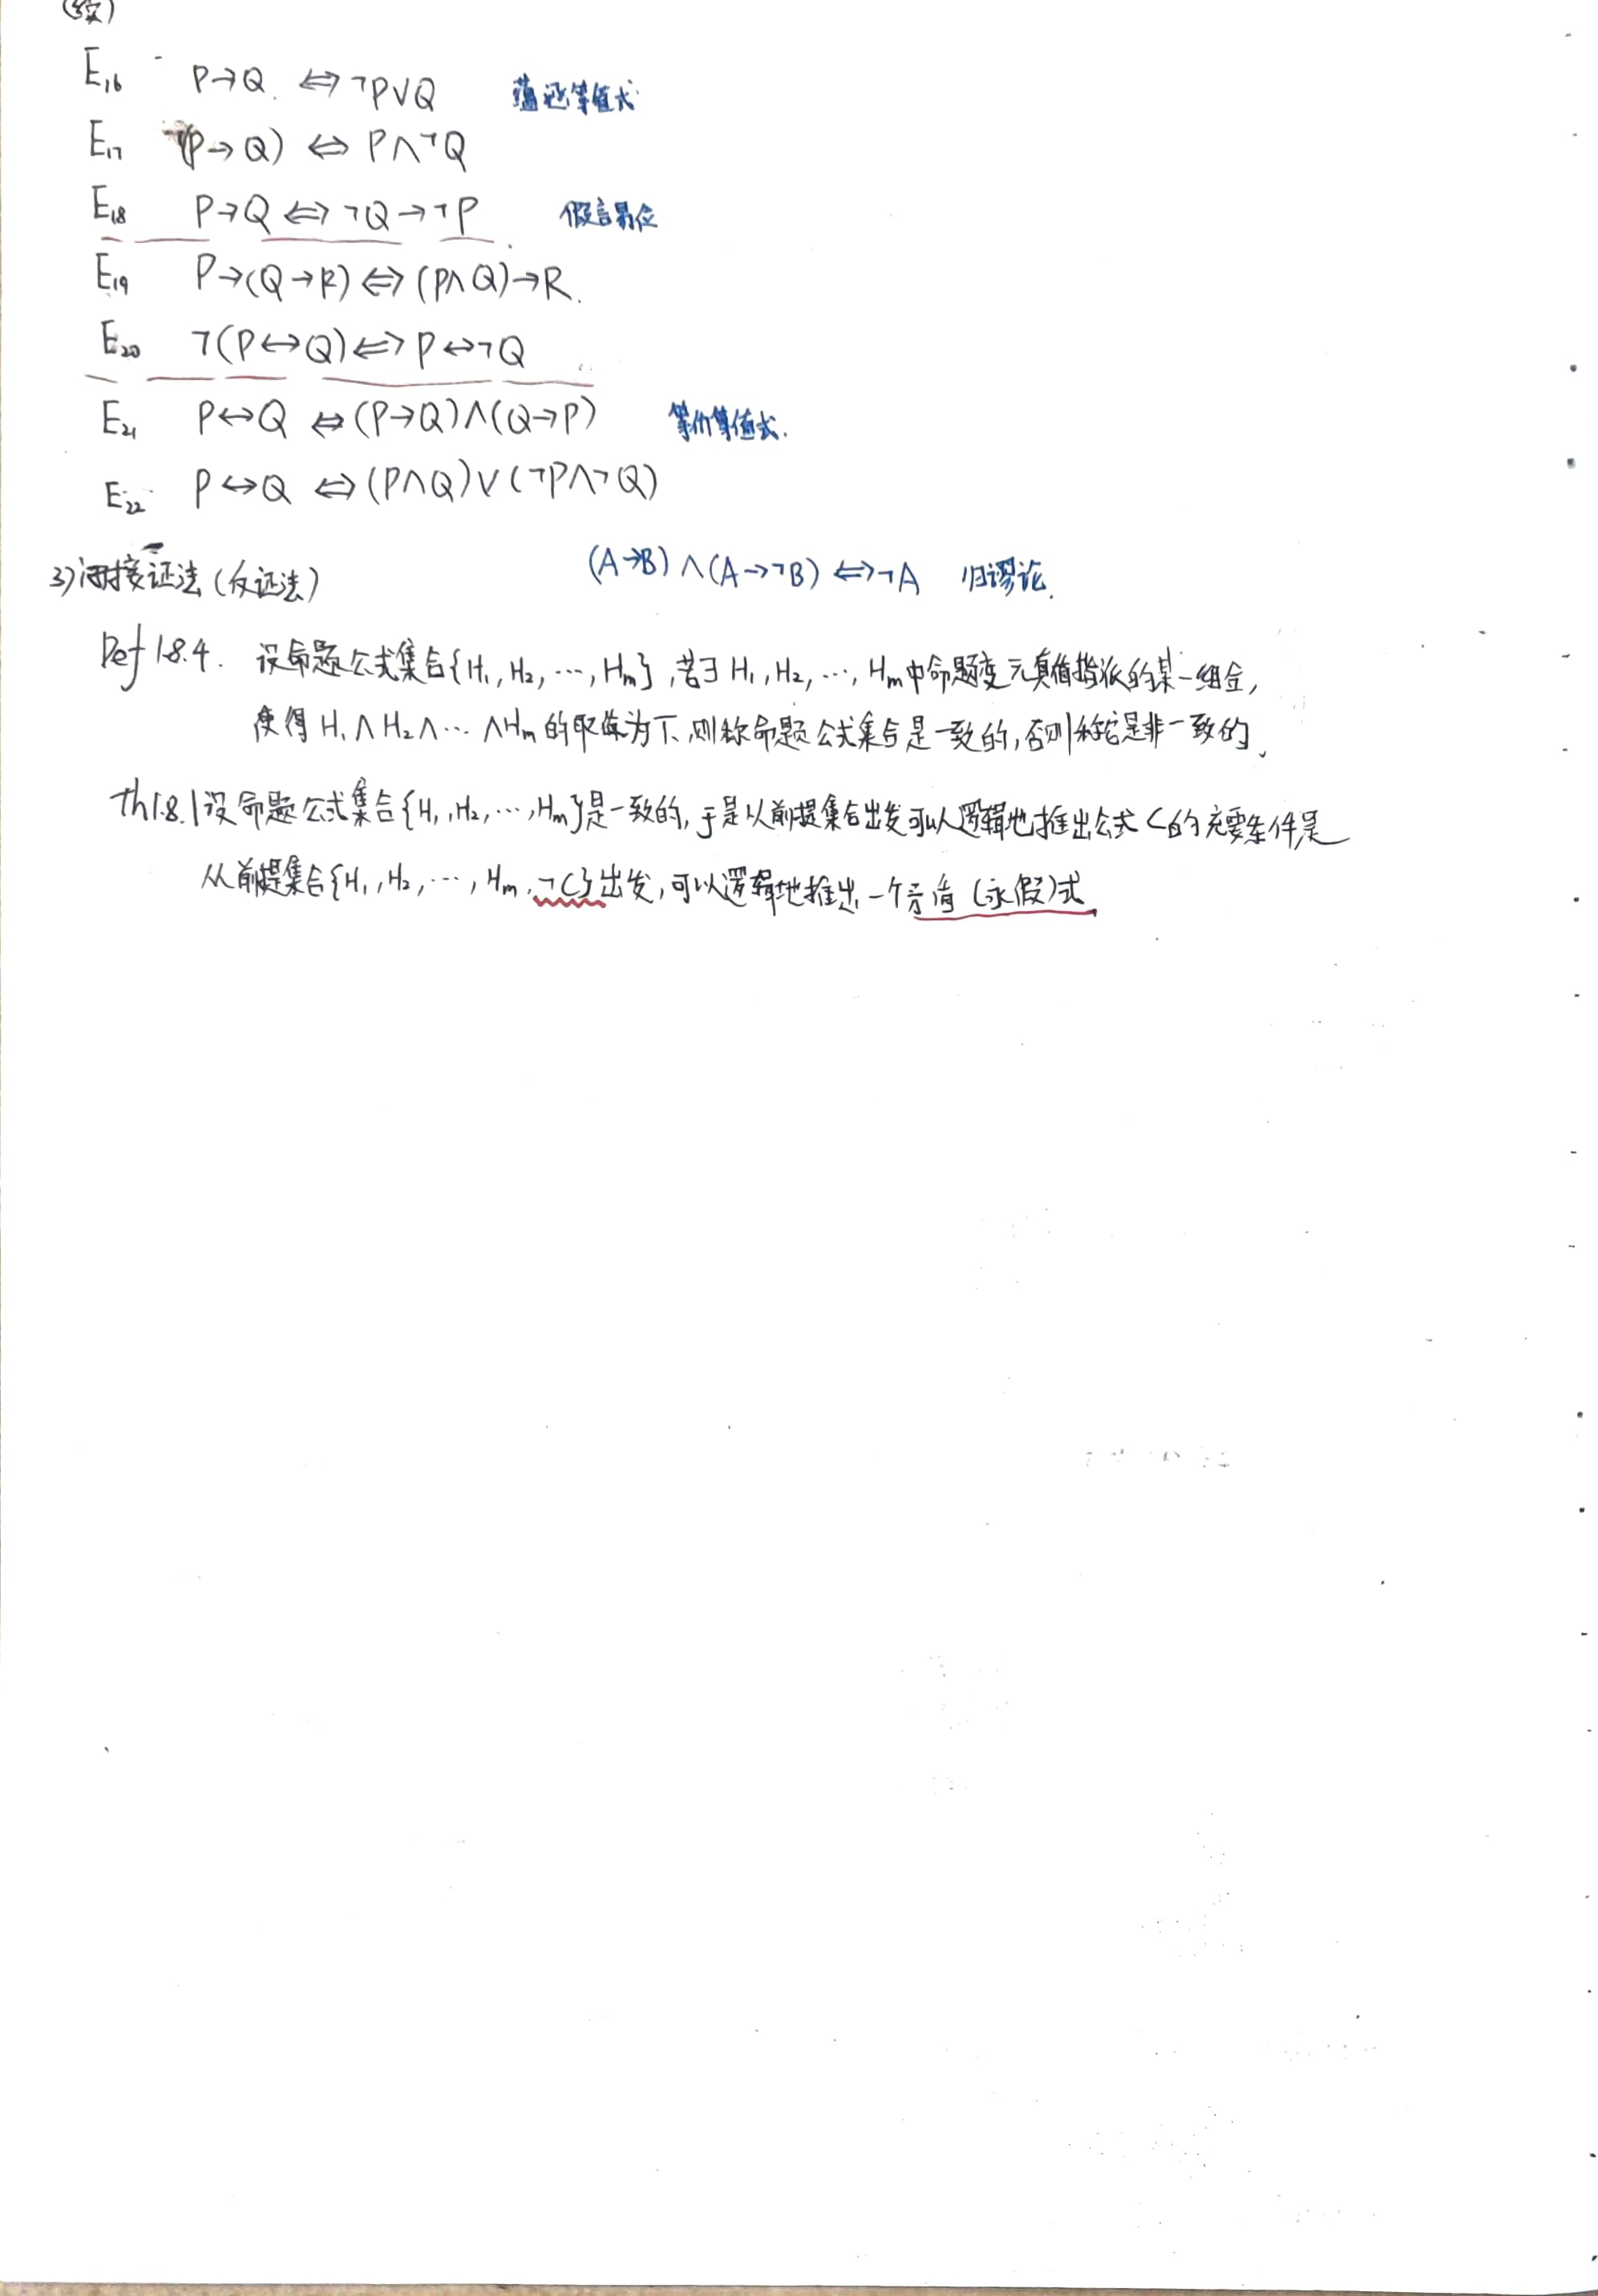 (续)
E₁₆ P→Q ⇔ ¬P∨Q 蕴涵等值式
E₁₇ ¬(P→Q) ⇔ P∧¬Q
E₁₈ P→Q ⇔ ¬Q→¬P 假言易位
E₁₉ P→(Q→R) ⇔ (P∧Q)→R.
E₂₀ ¬(P↔Q) ⇔ P↔¬Q
E₂₁ P↔Q ⇔ (P→Q)∧(Q→P) 等价等值式.
E₂₂ P↔Q ⇔ (P∧Q)∨(¬P∧¬Q)
3) 间接证法(反证法) (A→B)∧(A→¬B) ⇔ ¬A 归谬论.
Def 1.8.4. 设命题公式集合{H₁, H₂, ···, Hm}, 若∃ H₁, H₂, ···, Hm中命题变元真值指派的某一组合,
使得 H₁∧H₂∧···∧Hm 的取值为T, 则称命题公式集合是一致的, 否则称它是非一致的.
Th1.8.1 设命题公式集合{H₁, H₂, ···, Hm}是一致的, 于是以前提集合出发可以逻辑地推出公式C的充要条件是
从前提集合{H₁, H₂, ···, Hm, ¬C}出发, 可以逻辑地推出一个矛盾(永假)式